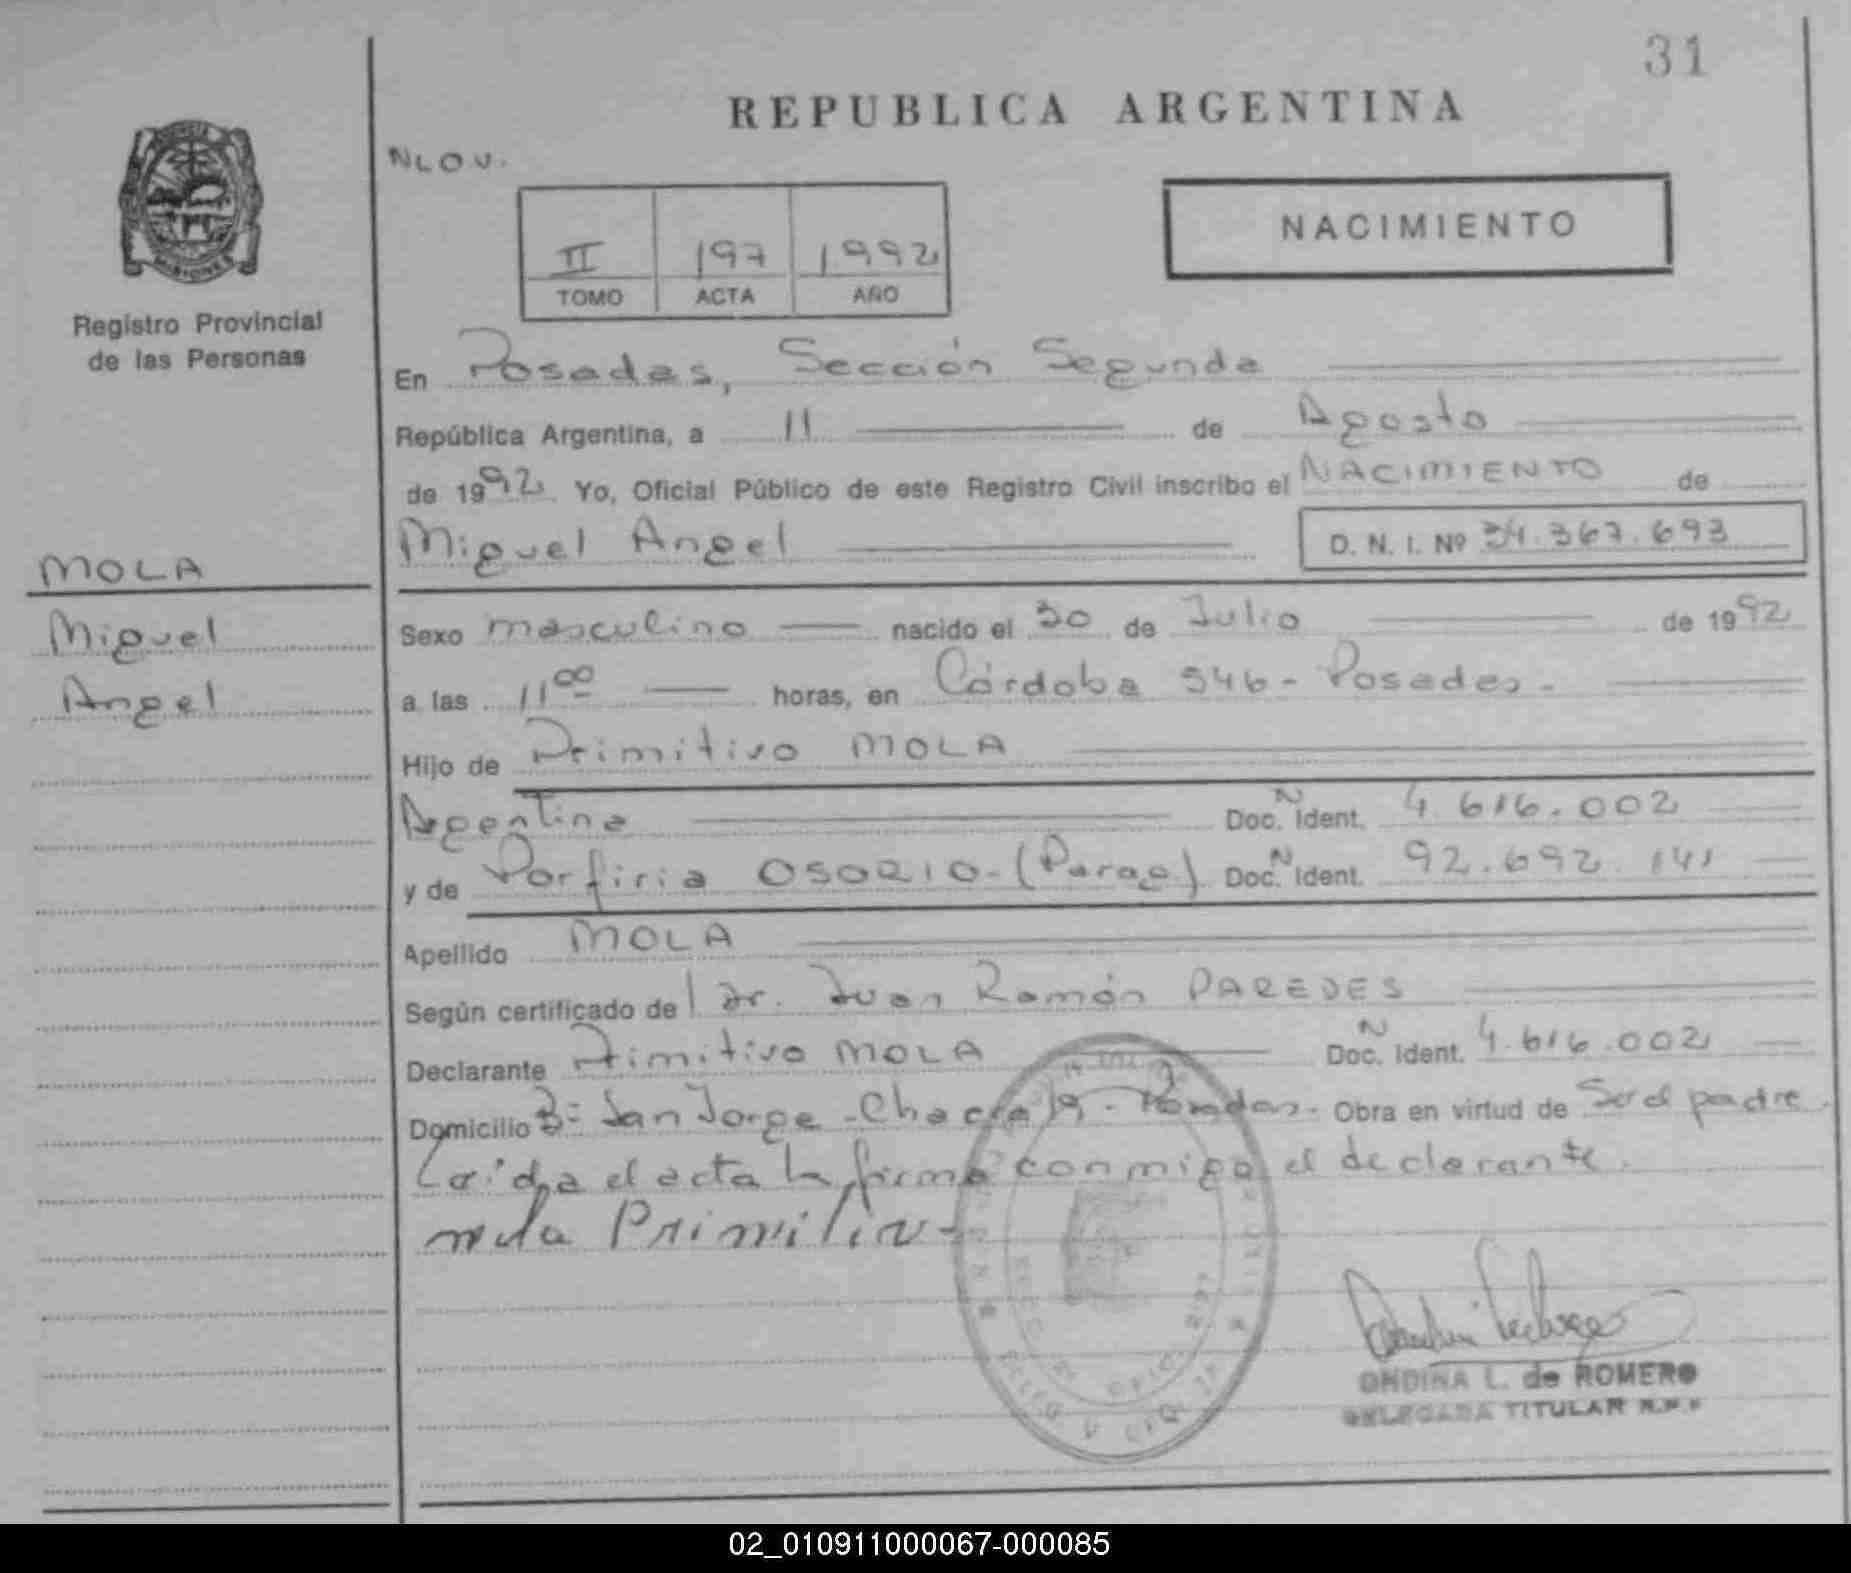 31
REPUBLICA ARGENTINA
NLOV.
NACIMIENTO
II 197 1992
TOMO ACTA AÑO
MISIONES
Registro Provincial
de las Personas
En Posadas, Sección Segunda
República Argentina, a 11 de Agosto
de 1992 Yo, Oficial Público de este Registro Civil inscribo el NACIMIENTO de
Miguel Angel D. N. I. Nº 34.367.693
MOLA
Miguel
Angel
Sexo masculino nacido el 30 de Julio de 1992
a las 11 00 horas, en Córdoba 546 - Posadas -
Hijo de Primitivo MOLA
Argentina Doc. N Ident. 4.616.002
y de Porfiria OSORIO - (Parag.) Doc. N Ident. 92.692.141
Apellido MOLA
Según certificado de Dr. Juan Ramón PAREDES
Declarante Primitivo MOLA Doc. N Ident. 4.616.002
Domicilio Bº San Jorge - Chacra - Posadas - Obra en virtud de Ser el padre.
Leida el acta la firma conmigo el declarante.
mola Primitivo
ONDINA L. de ROMERO
DELEGADA TITULAR R.P.P
02_010911000067-000085